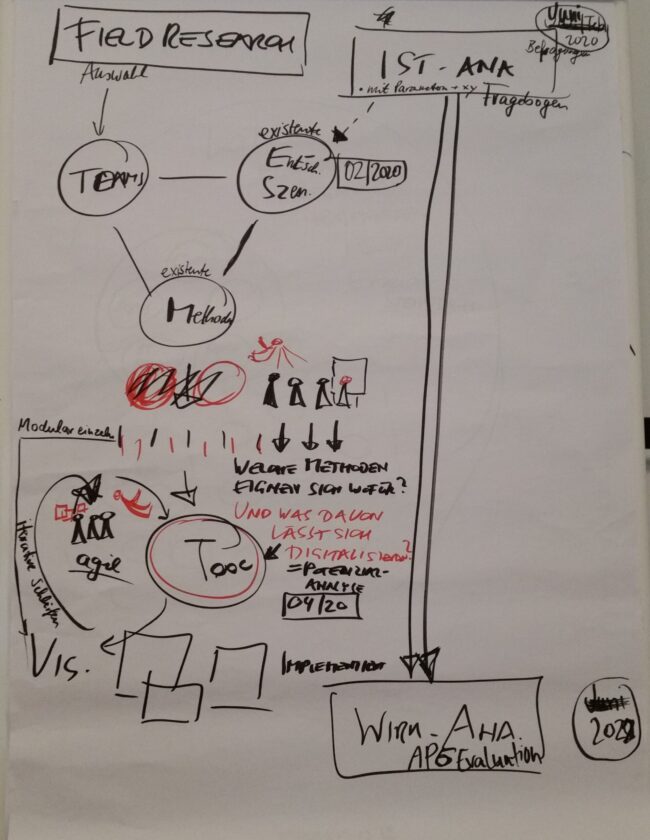 FIELD RESEARCH
Auswahl
Feb
2020
Befragungen
IST-ANA
• mit Parametern + xy
Fragebogen
TEAMS
existente
Entsch.
Szen.
02/2020
existente
Methoden
Modular einzeln
WELCHE METHODEN
EIGNEN SICH WOFÜR?
UND WAS DAVON
LÄSST SICH
DIGITALISIEREN?
= POTENZIAL-
ANALYSE
04/20
agil
Iterative Schleifen
TOOL
VIS.
IMPLEMENTIERT
WIRK-ANA.
APE Evaluation